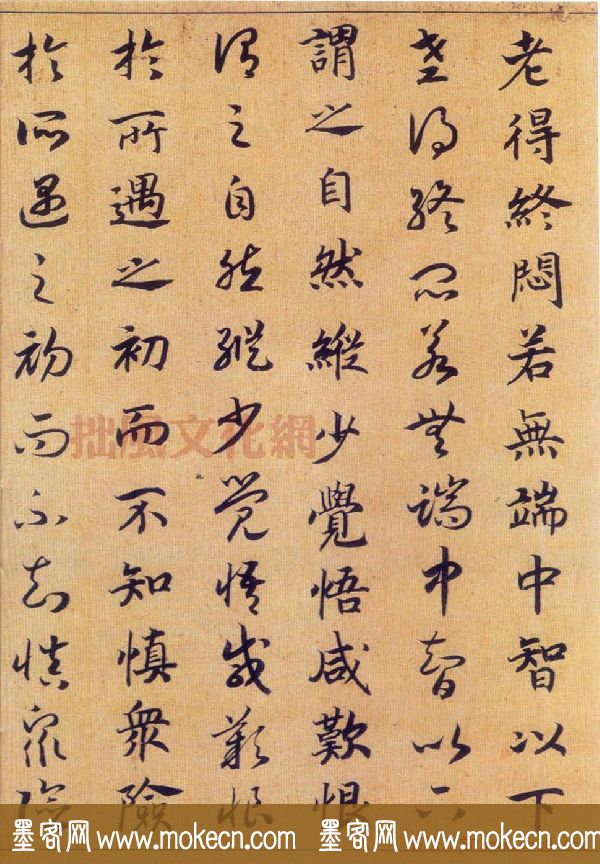 老得終悶若無端中智以下
老得終悶若無端中智以下
謂之自然縱少覺悟咸歎恨
謂之自然縱少覺悟咸歎恨
於所遇之初而不知慎衆險
於所遇之初而不知慎衆險
拙風文化網
墨客网 www.mokecn.com 墨客网 www.mokecn.com